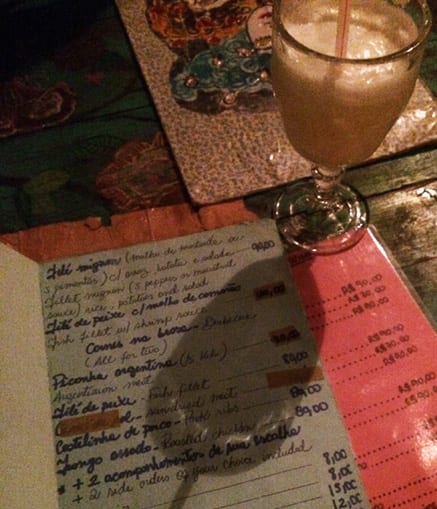 Filé mignon (molho de mostarda ou 99,00
3 pimentas) c/ arroz, batata e salada
Fillet mignon (3 peppers or mustard
sauce) rice, potatoes and salad
Filé de peixe c/ molho de camarão
Fish fillet w/ shrimp sauce
Carnes na brasa - Barbecue
(All for two)
Picanha argentina
Argentinian meat 89,00
Filé de peixe - Fish fillet
sol - sundried meat
Costelinha de porco - Pork ribs 89,00
Frango assado - Roasted chicken 89,00
+ 2 acompanhamentos de sua escolha
+ 2 side orders of your choice included
8,00
8,00
15,00
12,00
R$ 90,00
R$ 90,00
R$ 90,00
R$ 90,00